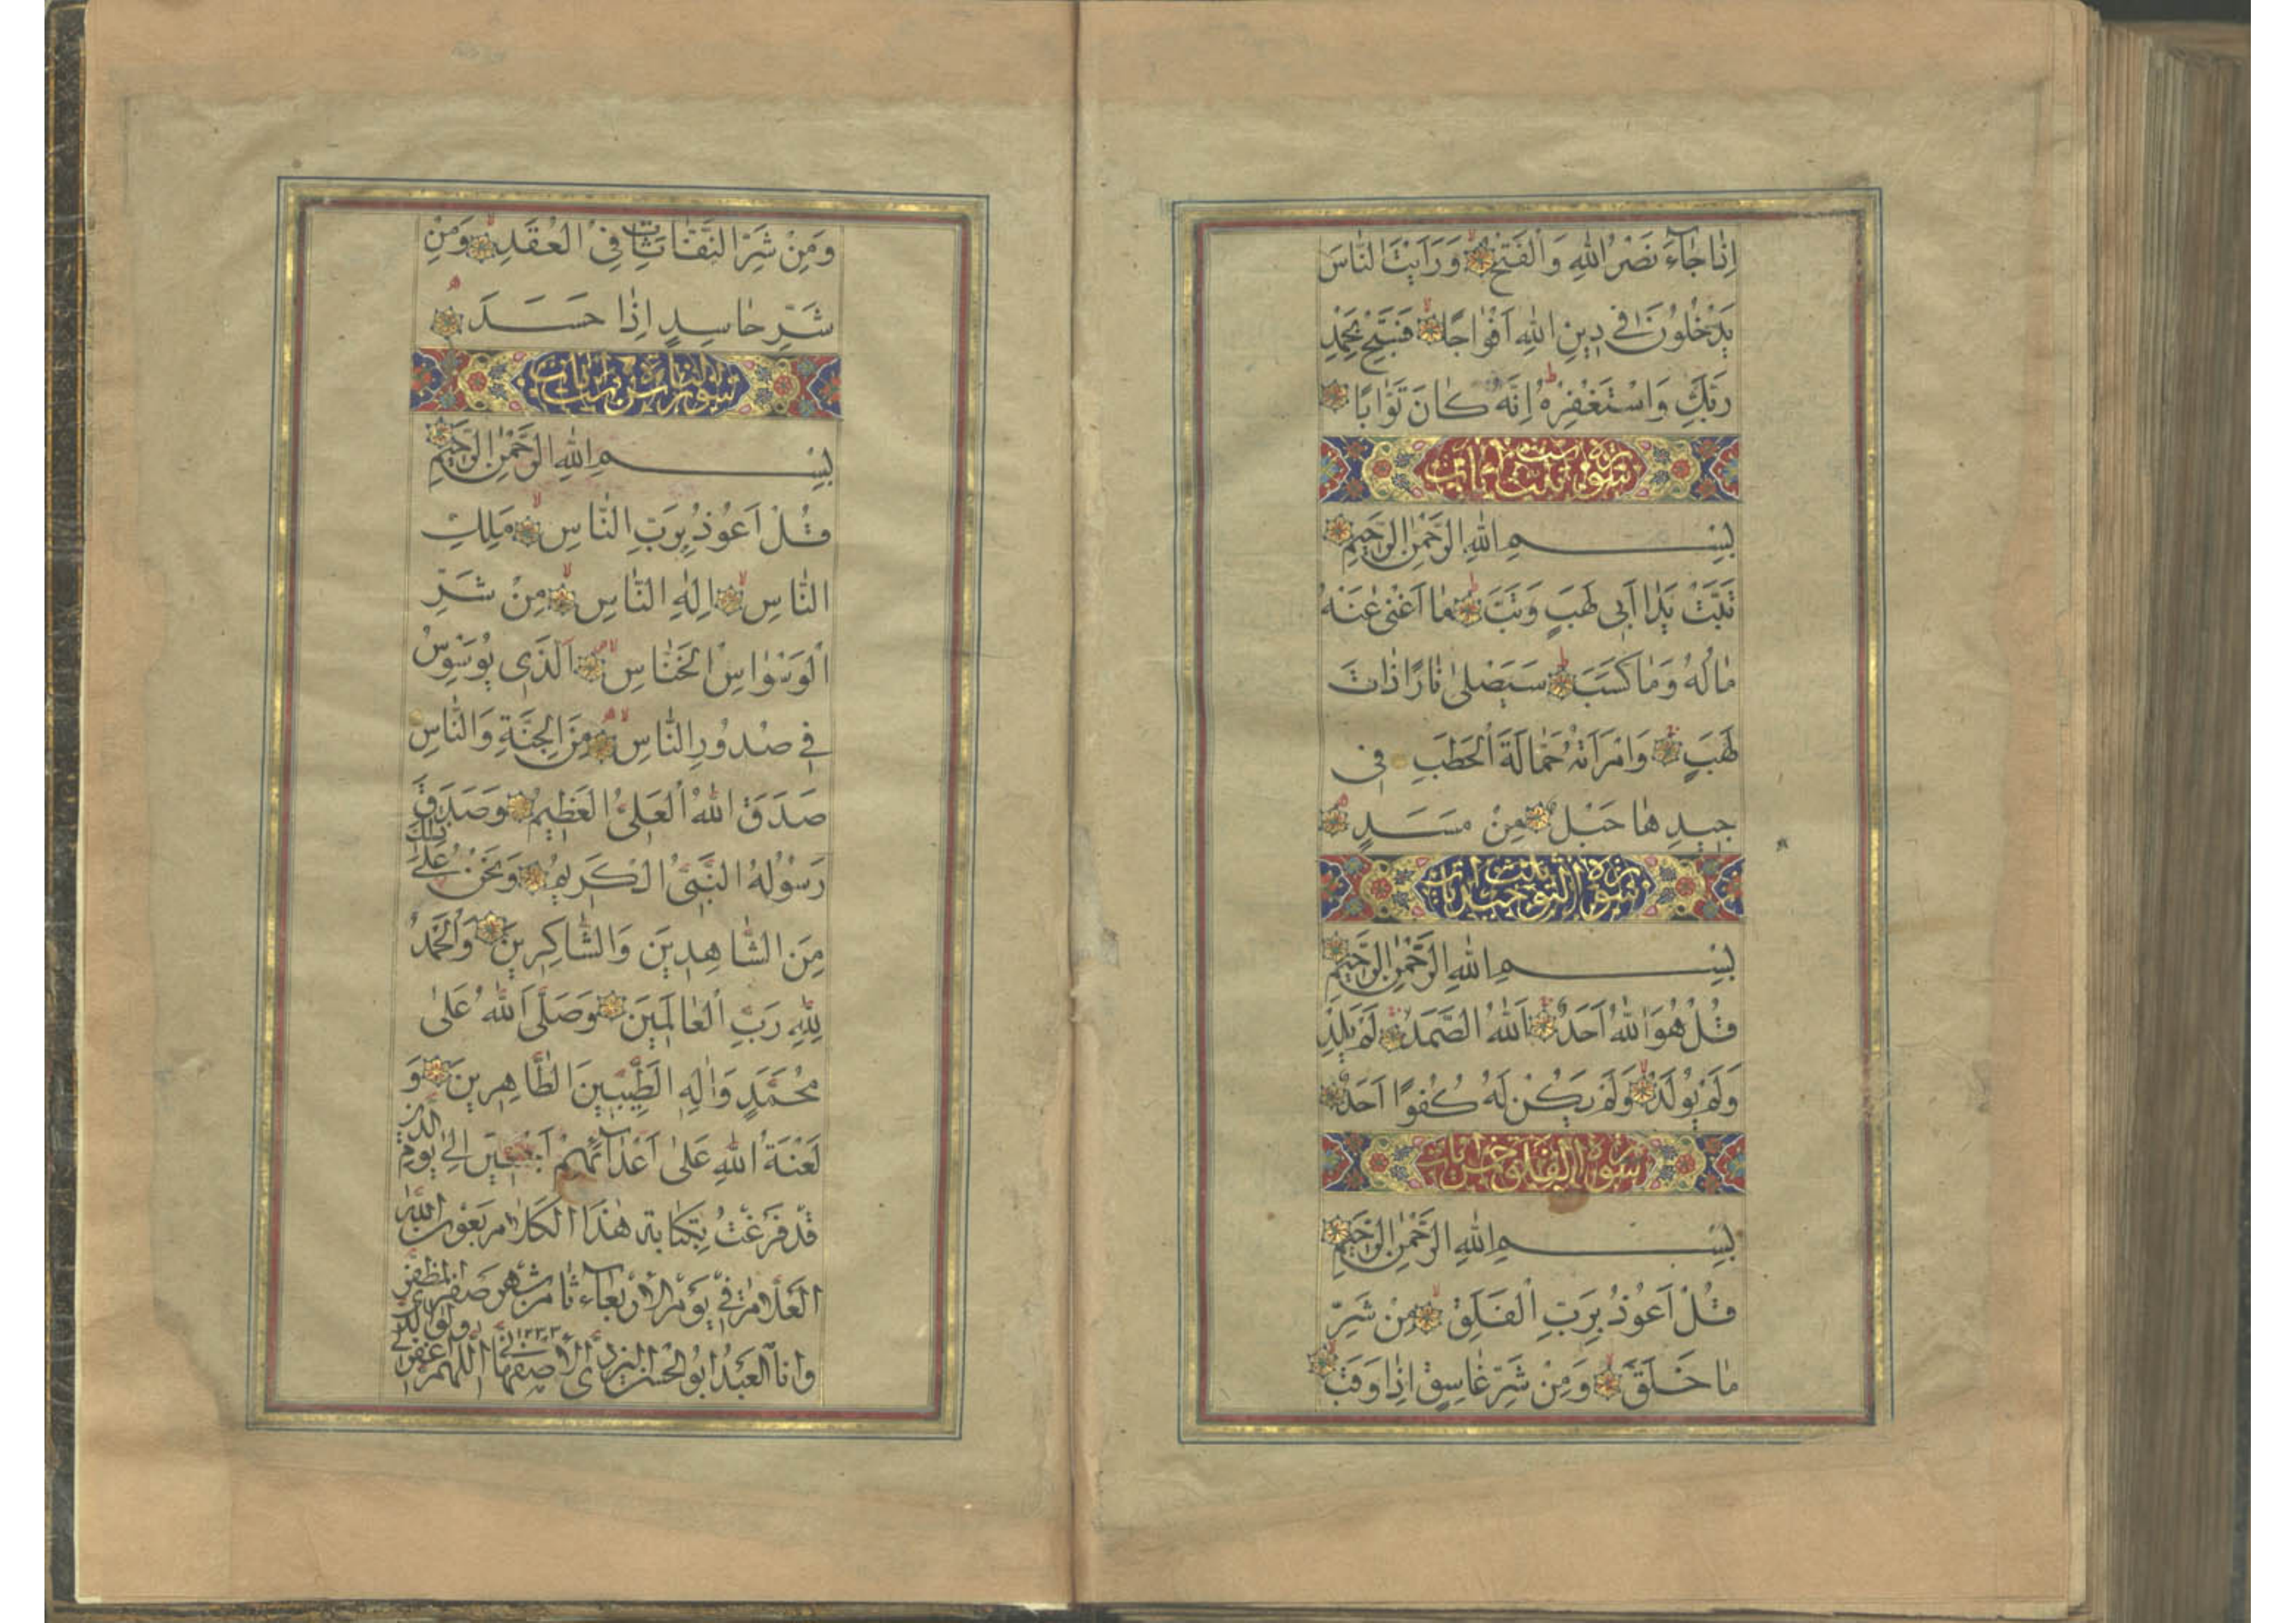 اِذٰا جٰاۤءَ نَصْرُ اللّٰهِ وَالْفَتْحُ وَرَاَيْتَ النّٰاسَ
يَدْخُلُونَ فِي دِينِ اللّٰهِ اَفْوٰاجًا فَسَبِّحْ بِحَمْدِ
رَبِّكَ وَاسْتَغْفِرْهُ اِنَّهُ كٰانَ تَوّٰابًا
سورة تبت
بِسْمِ اللّٰهِ الرَّحْمٰنِ الرَّحِيمِ
تَبَّتْ يَدٰا اَبِي لَهَبٍ وَتَبَّ مٰا اَغْنٰى عَنْهُ
مٰالُهُ وَمٰا كَسَبَ سَيَصْلٰى نٰارًا ذٰاتَ
لَهَبٍ وَامْرَاَتُهُ حَمّٰالَةَ الْحَطَبِ فِي
جِيدِهٰا حَبْلٌ مِنْ مَسَدٍ
سورة التوحيد
بِسْمِ اللّٰهِ الرَّحْمٰنِ الرَّحِيمِ
قُلْ هُوَ اللّٰهُ اَحَدٌ اَللّٰهُ الصَّمَدُ لَمْ يَلِدْ
وَلَمْ يُولَدْ وَلَمْ يَكُنْ لَهُ كُفُوًا اَحَدٌ
سورة الفلق خمس ايات
بِسْمِ اللّٰهِ الرَّحْمٰنِ الرَّحِيمِ
قُلْ اَعُوذُ بِرَبِّ الْفَلَقِ مِنْ شَرِّ
مٰا خَلَقَ وَمِنْ شَرِّ غٰاسِقٍ اِذٰا وَقَبَ
وَمِنْ شَرِّ النَّفّٰاثٰاتِ فِي الْعُقَدِ وَمِنْ
شَرِّ حٰاسِدٍ اِذٰا حَسَدَ
سورة الناس ست ايات
بِسْمِ اللّٰهِ الرَّحْمٰنِ الرَّحِيمِ
قُلْ اَعُوذُ بِرَبِّ النّٰاسِ مَلِكِ
النّٰاسِ اِلٰهِ النّٰاسِ مِنْ شَرِّ
الْوَسْوٰاسِ الْخَنّٰاسِ اَلَّذِي يُوَسْوِسُ
فِي صُدُورِ النّٰاسِ مِنَ الْجِنَّةِ وَالنّٰاسِ
صَدَقَ اللّٰهُ الْعَلِيُّ الْعَظِيمُ وَصَدَقَ
رَسُولُهُ النَّبِيُّ الْكَرِيمُ وَنَحْنُ عَلٰى ذٰلِكَ
مِنَ الشّٰاهِدِينَ وَالشّٰاكِرِينَ وَالْحَمْدُ
لِلّٰهِ رَبِّ الْعٰالَمِينَ وَصَلَّى اللّٰهُ عَلٰى
مُحَمَّدٍ وَاٰلِهِ الطَّيِّبِينَ الطّٰاهِرِينَ وَ
لَعْنَةُ اللّٰهِ عَلٰى اَعْدٰاۤئِهِمْ اَجْمَعِينَ اِلٰى يَوْمِ الدِّينِ
قَدْ فَرَغْتُ بِكِتٰابَةِ هٰذَا الْكَلٰامِ بِعَوْنِ اللّٰهِ
الْعَلّٰامِ فِي يَوْمِ الْاَرْبَعٰاۤءِ ثٰامِنِ شَهْرِ صَفَرِ الْمُظَفَّرِ
وَاَنَا الْعَبْدُ اَبُو الْحَسَنِ الْيَزْدِيُّ الْاِصْفَهٰانِيُّ ١٢٣٣ اَللّٰهُمَّ اغْفِرْ لِي وَلِوٰالِدَيَّ